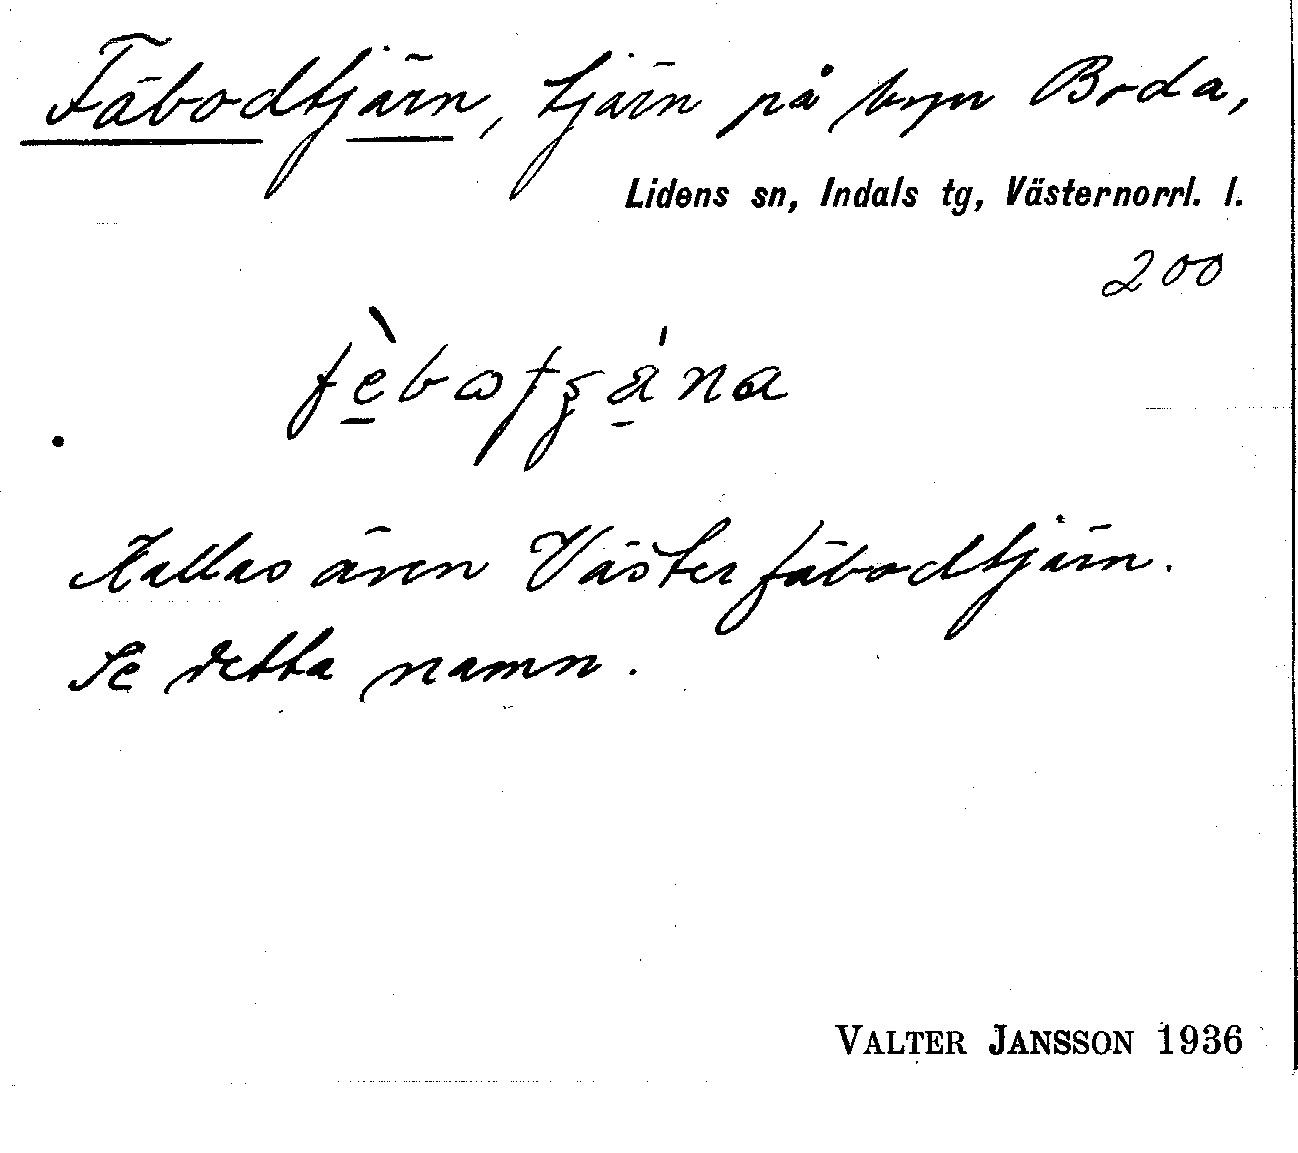 Fäbodtjärn, tjärn på byn Boda,
Lidens sn, Indals tg, Västernorrl. l.
200
Kallas även Västerfäbodtjärn.
Se detta namn.
VALTER JANSSON 1936